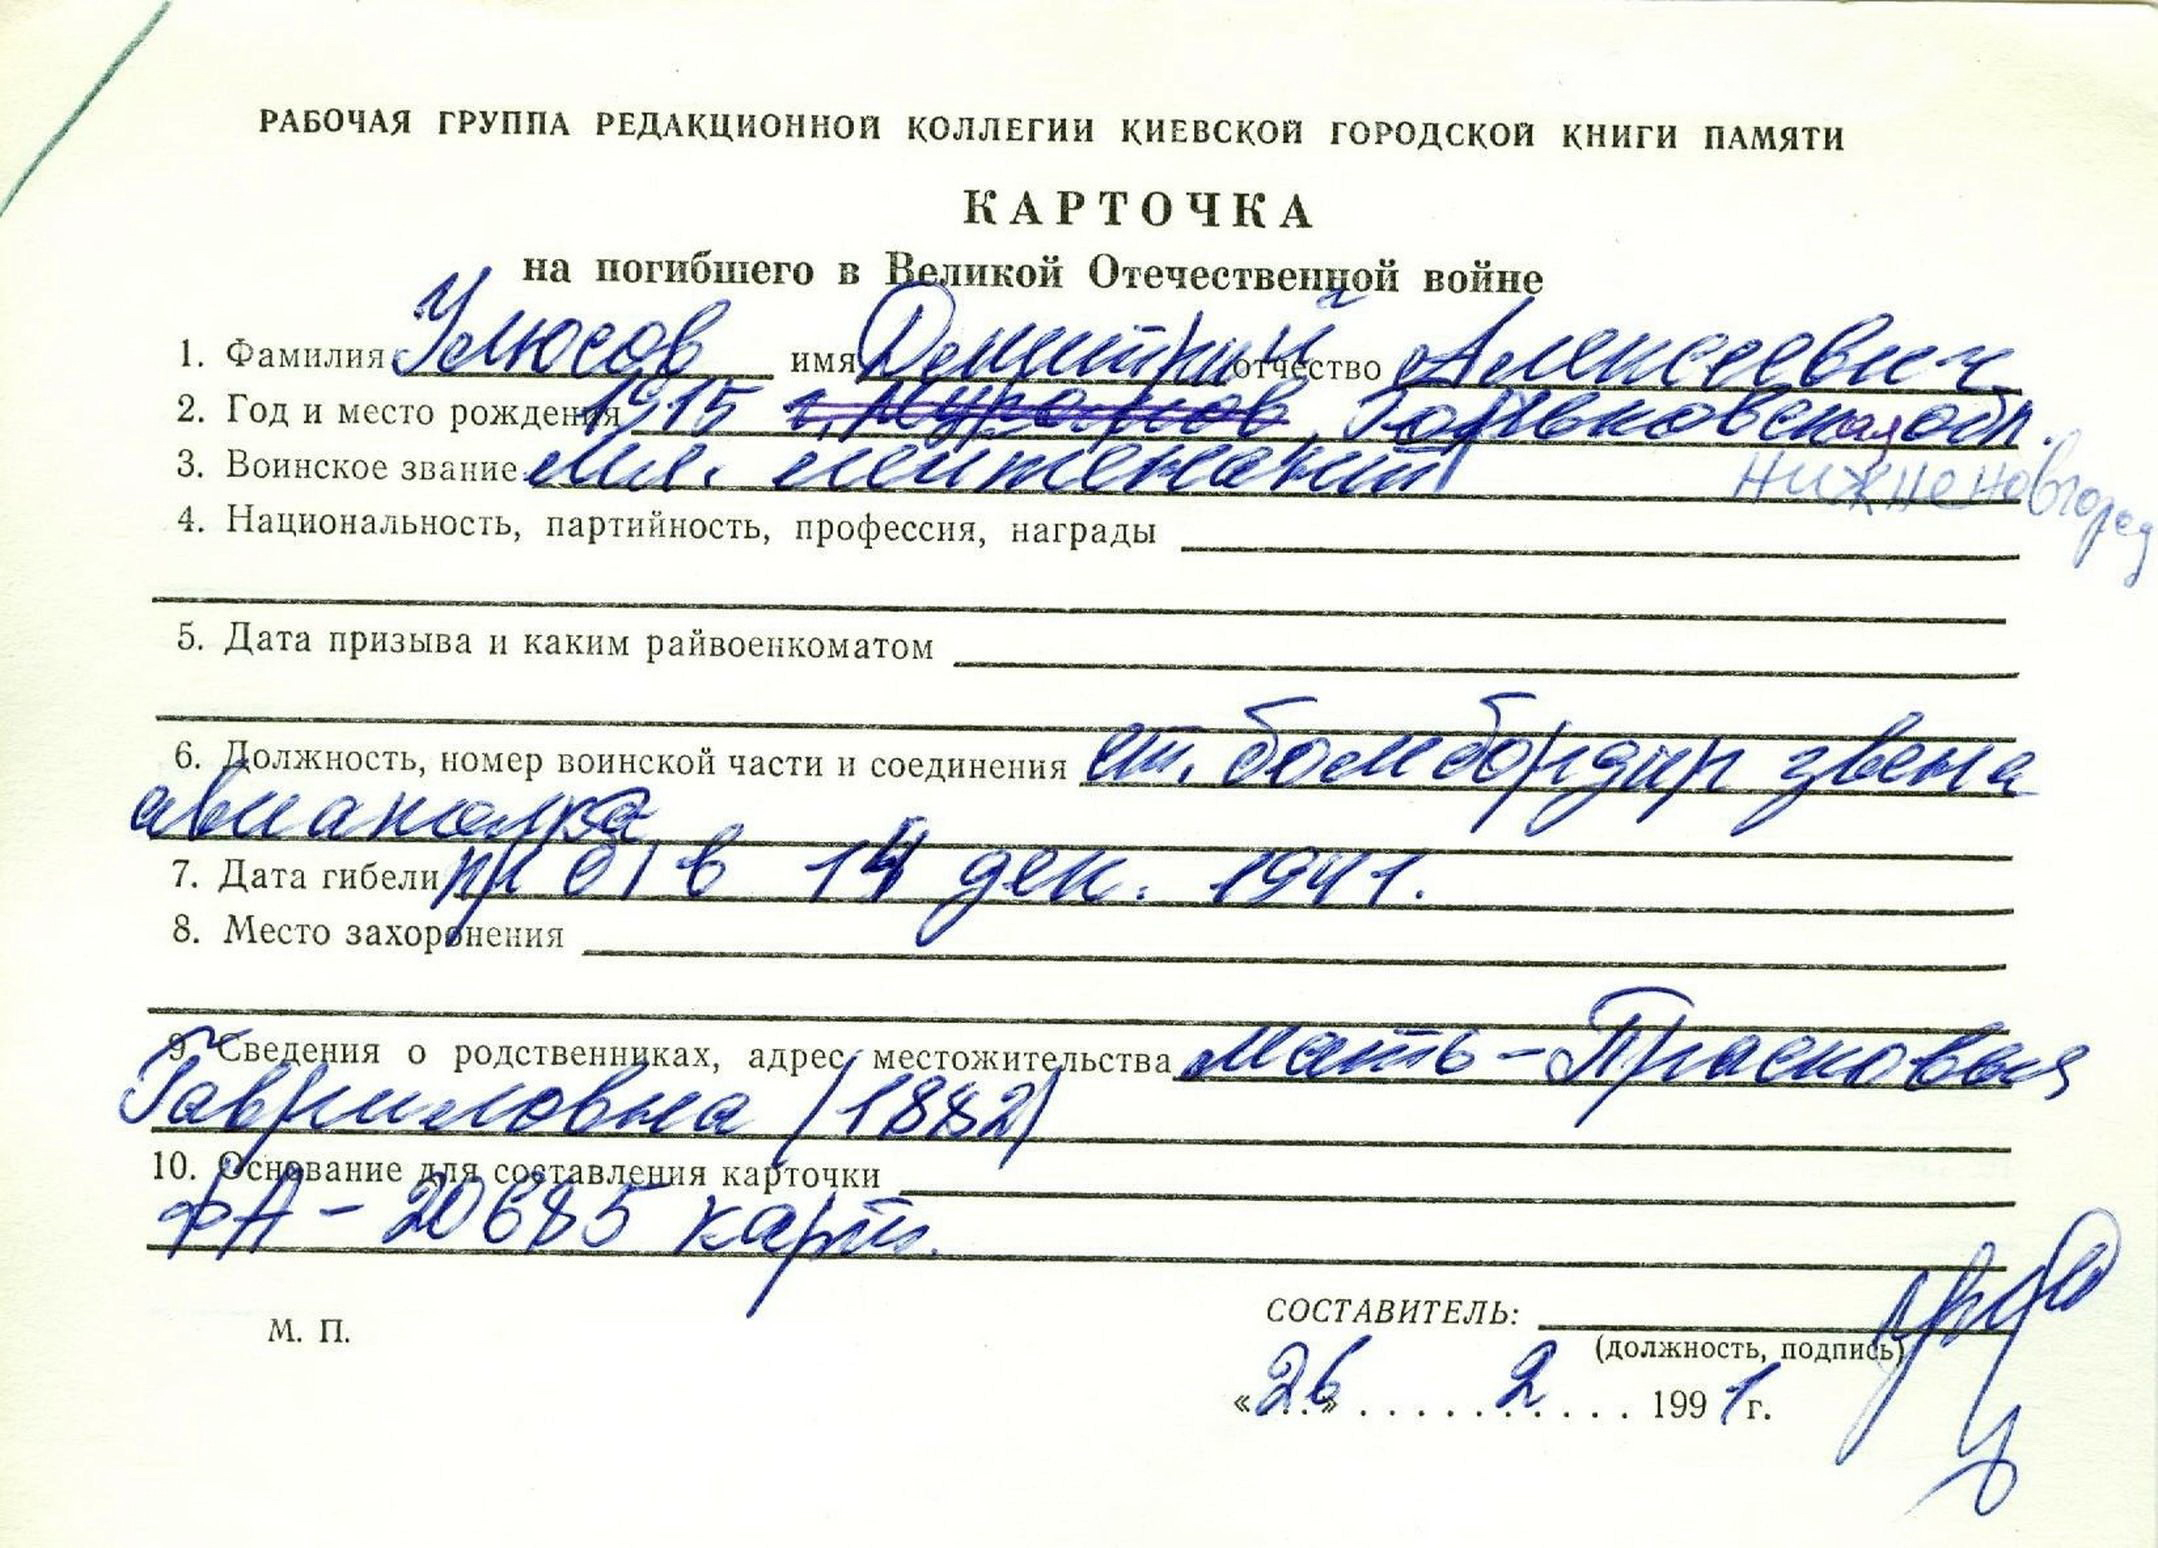 РАБОЧАЯ ГРУППА РЕДАКЦИОННОЙ КОЛЛЕГИИ КИЕВСКОЙ ГОРОДСКОЙ КНИГИ ПАМЯТИ
КАРТОЧКА
на погибшего в Великой Отечественной войне
1. Фамилия Улюсов имя Дмитрий отчество Алексеевич
2. Год и место рождения 1915 г., Горьковская обл.
3. Воинское звание мл. лейтенант Нижненовгород
4. Национальность, партийность, профессия, награды
5. Дата призыва и каким райвоенкоматом
6. Должность, номер воинской части и соединения ст. бомбордир звена
авиаполка
7. Дата гибели дек. 1941.
8. Место захоронения
9. Сведения о родственниках, адрес местожительства Мать - Прасковья
Гавриловна (1882)
10. Основание для составления карточки
фА - 20685 карт.
М. П.
СОСТАВИТЕЛЬ:
(должность, подпись)
«26» 2 1991 г.